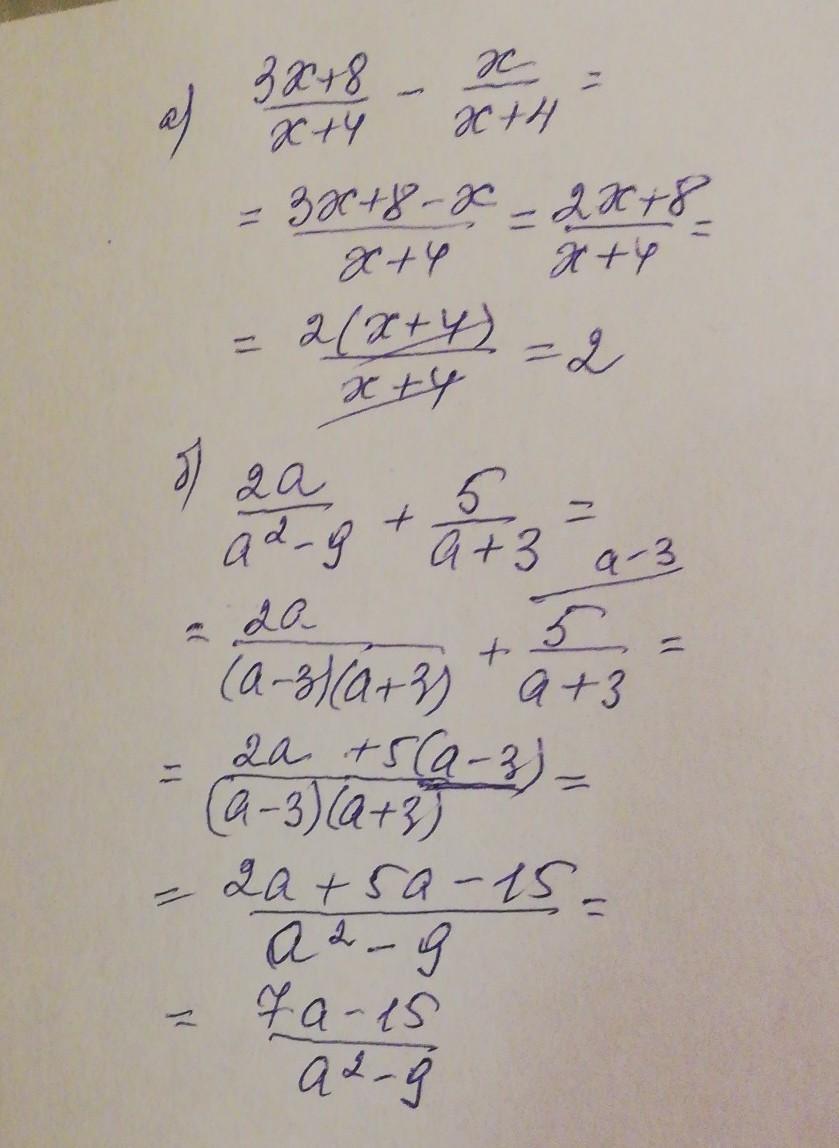 а) (3x+8)/(x+4) - x/(x+4) =
= (3x+8-x)/(x+4) = (2x+8)/(x+4) =
= 2(x+4)/(x+4) = 2
б) 2a/(a²-9) + 5/(a+3) =
a-3
= 2a/((a-3)(a+3)) + 5/(a+3) =
= (2a +5(a-3))/((a-3)(a+3)) =
= (2a+5a-15)/(a²-9) =
= (7a-15)/(a²-9)